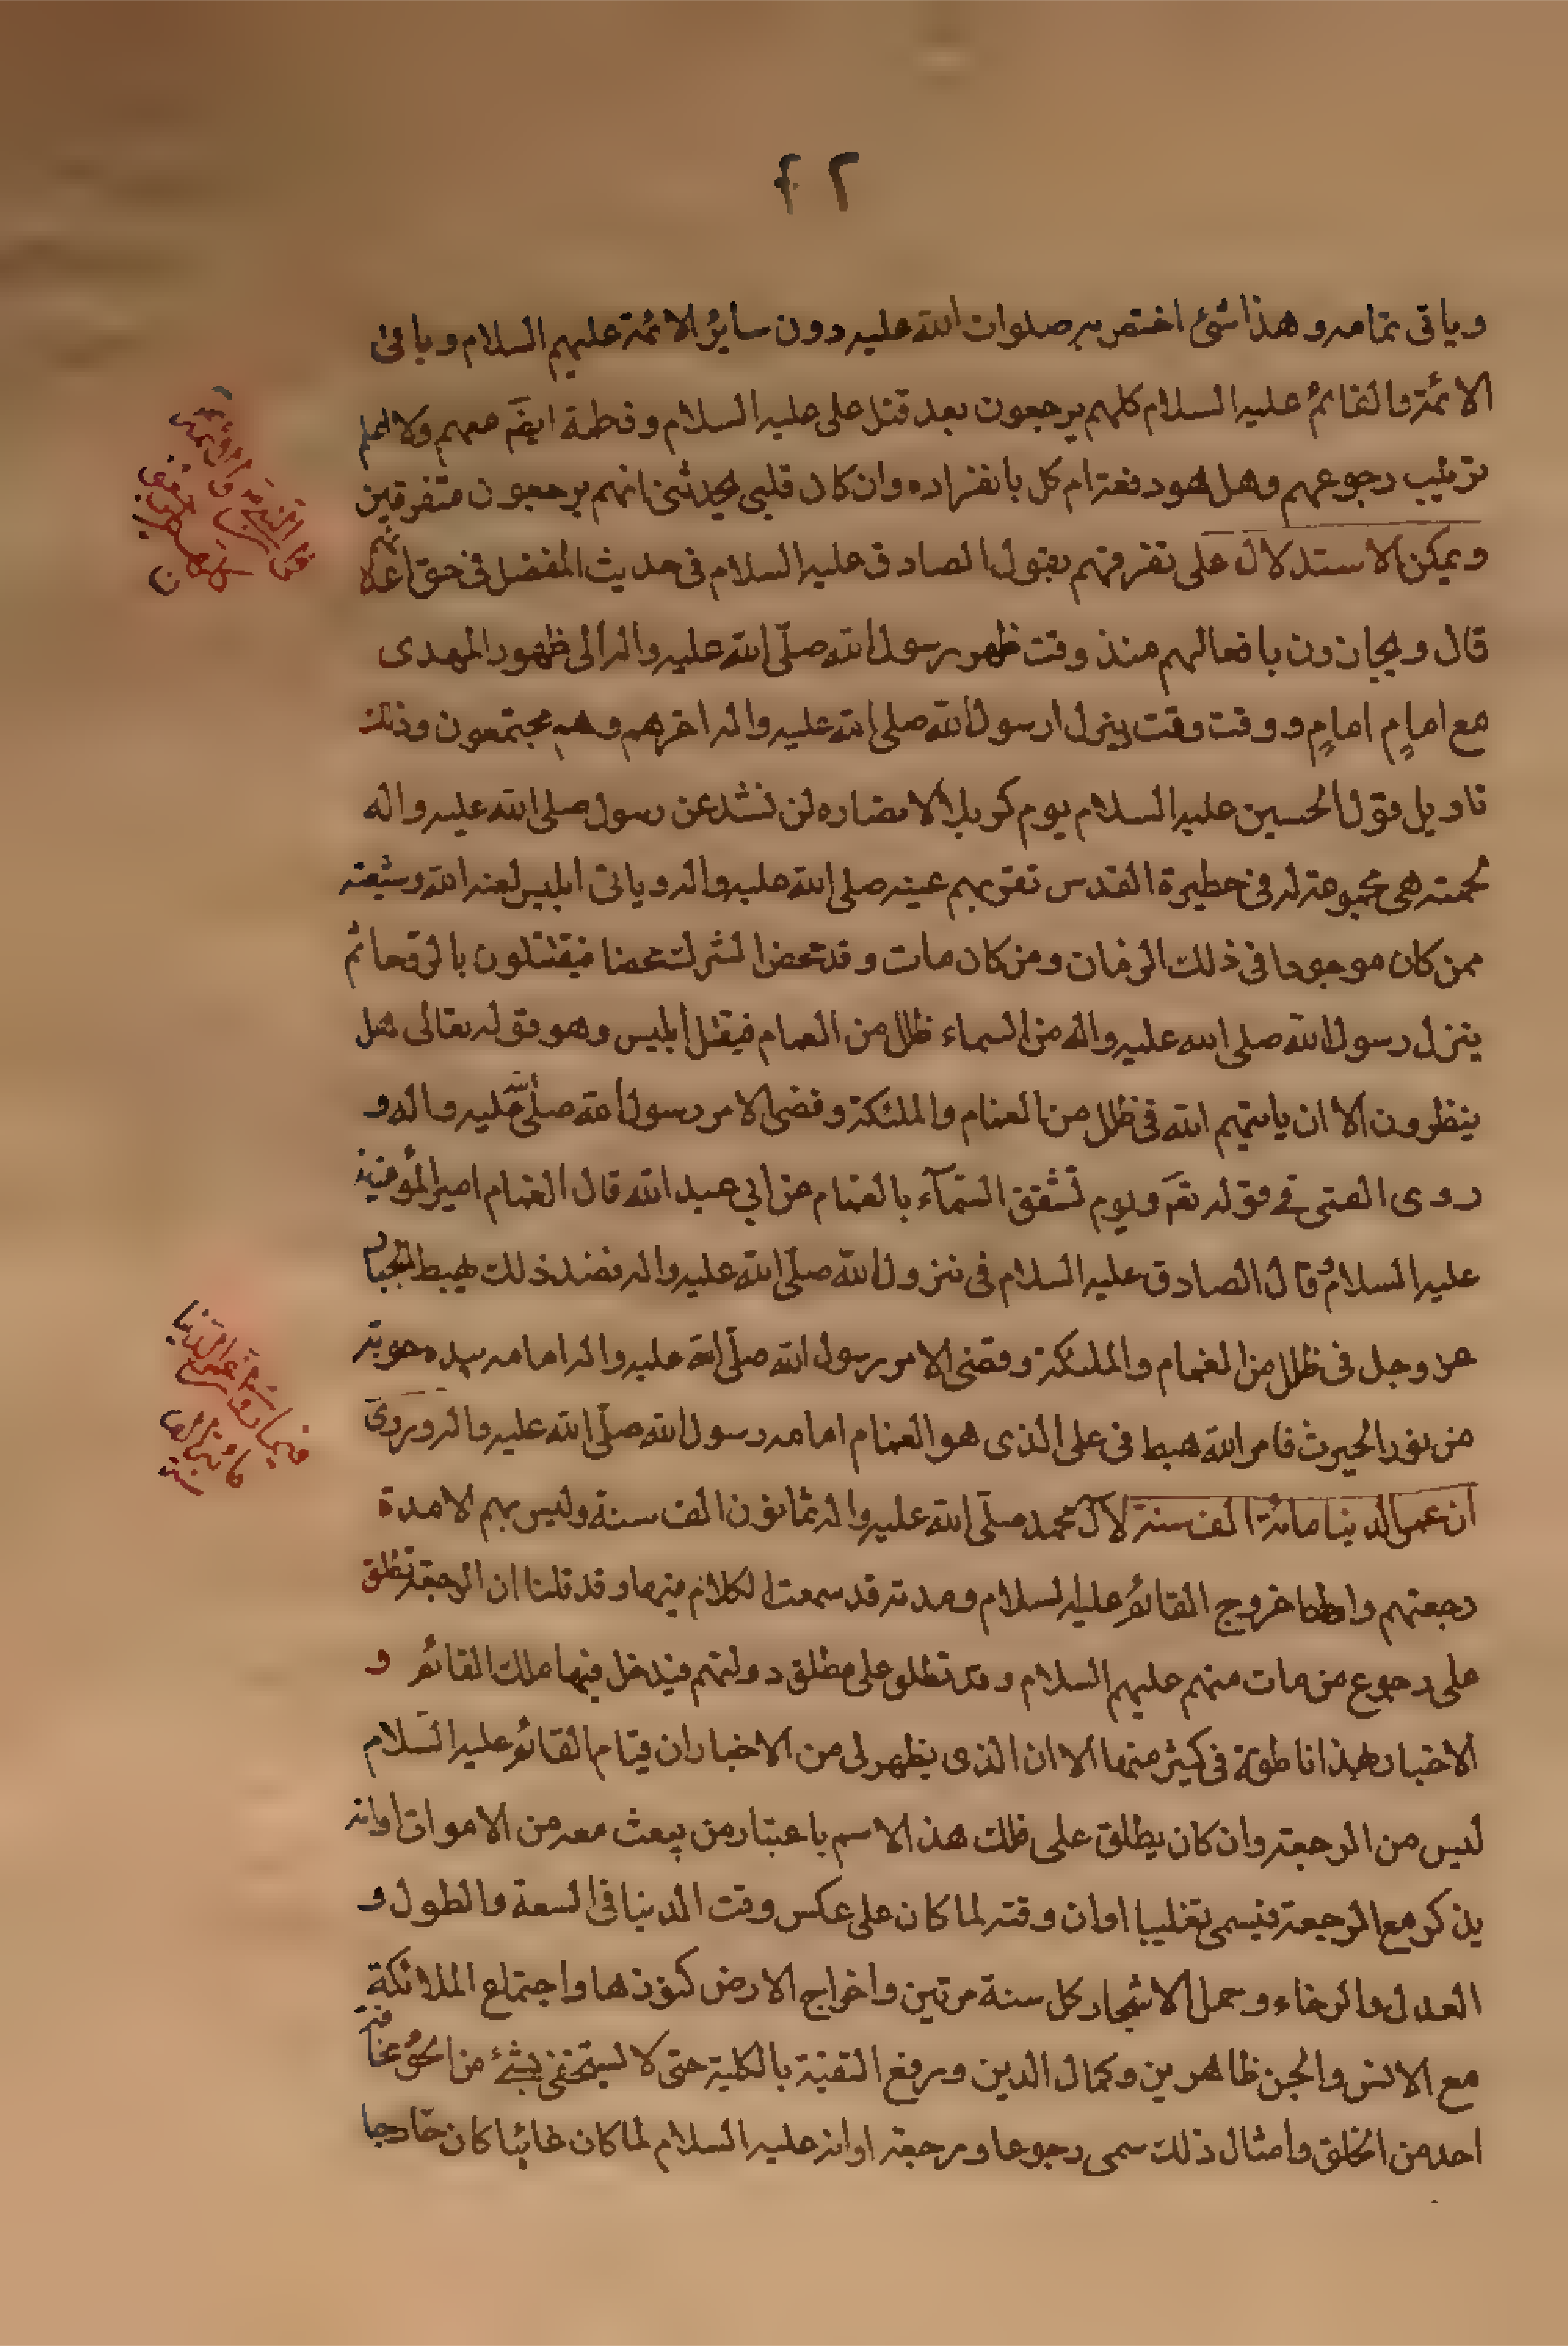 ٤٢
وياتى تمامه وهذا شئ اختص به صلوات الله عليه دون ساير الائمة عليهم السلام وباقى
الائمة والقائم عليه السلام كلهم يرجعون بعد قتل على عليه السلام وفطمة ايضَ معهم ولا اعلم
ترتيب رجوعهم وهل هو دفعة ام كل بانفراده وان كان قلبى يحدثنى انهم يرجعون متفرقين
ويمكن الاستدلال على تفرقهم بقول الصادق عليه السلام فى حديث المفضل فى حق اعدائهم
قال ويجازون بافعالهم منذ وقت ظهر رسول الله صلّى الله عليه واله الى ظهور المهدى
مع امامٍ امامٍ ووقت وقت وينزل رسول الله صلى الله عليه واله اخرهم وهم مجتمعون وذلك
تاويل قول الحسين عليه السلام يوم كربلا لانصاره لن تشذ عن رسول صلى الله عليه واله
لحمته هى مجموعة له فى حطيرة القدس تقر بهم عينه صلى الله عليه واله وياتى ابليس لعنه الله وشيعته
ممن كان موجودا فى ذلك الزمان ومن كان مات وقد محض الشر محضا فيقتتلون بالروحا ثم
ينزل رسول الله صلى الله عليه واله من السماء ظلل من الغمام فيقتل ابليس وهو قوله تعالى هل
ينظرون الا ان ياتيهم الله فى ظلل من الغمام والملئكة وقضى الامر رسول الله صلى الله عليه واله و
روى القمى فى قوله تعَ ويوم تشقق السّمآء بالغمام عن ابي عبد الله قال الغمام امير المؤمنين
عليه السلام قال الصادق عليه السلام فى نزول الله صلّى الله عليه واله فعند ذلك يهبط الجبار
عز وجل فى ظلل من الغمام والملئكة وقضى الامر رسول الله صلّى الله عليه واله امامه بيده حربة
من نور الحيرث فامر الله هبط فى على الذى هو الغمام امامه رسول الله صلّى الله عليه واله وروى
ان عمر الدينا مائة الف سنة لال محمد صلّى الله عليه واله ثمانون الف سنة وليس بهم الا مدة
رجعتهم واما خروج القائم عليه السلام ومدته قد سمعت الكلام فيها وقد قلنا ان الرجعة تطلق
على رجوع من مات منهم عليهم السلام وقد تطلق على مطلق دولتهم فيدخل فيها ملك القائم و
الاخبار بهذا ناطقة فى كثير منها الا ان الذى يظهر لى من الاخبار ان قيام القائم عليه السّلام
ليس من الرجعة وان كان يطلق على ذلك هذ الاسم باعتبار من يبعث معه من الاموات اوانه
يذكر مع الرجعة فيسمى تغليبا اوان وقته لما كان على عكس وقت الدينا فى السعة والطول و
العدل والرخاء وحمل الاشجار كل سنة مرتين واخراج الارض كنوزها واجتماع الملائكة
مع الانس والجن ظاهرين وكمال الدين ورفع التقيّة بالكلية حتى لا يستخفى بشئ من الحق مخافة
احد من الخلق وامثال ذلك سمى رجوعا ورجعة اوانه عليه السلام لما كان غائبا كان خارجا
فيما روى ان عمر الدنيا
مائة الف
سنة